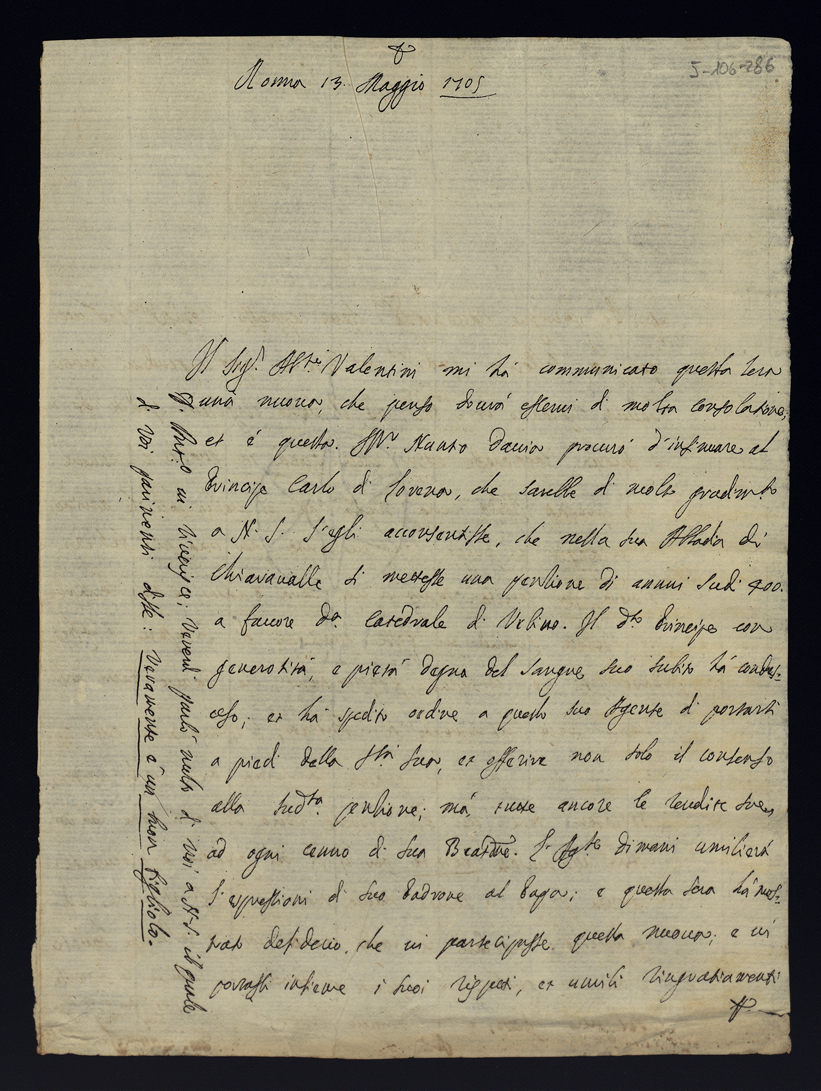 J-106-286
Roma 13. Maggio 1705
Il Sigr. Abte Valentini mi hà communicato questa sera
una nuova, che penso dovrà esservi di molta consolatione;
et è questa. Mr. Nunto Davia procurò d'insinuare al
Principe Carlo di Lorena, che sarebbe di molto gradimto
a N. S. s'egli acconsentisse, che nella sua Abbadia di
Chiaravalle si mettesse una pensione di annui scudi 400.
a favore da. Catedrale di Urbino. Il dto Principe con
generosità, e pietà degna del sangue suo subito hà condes-
ceso; et hà spedito ordine a questo suo Agente di portarsi
a piedi della Stà Sua, et offerire non solo il consenso
alla sudta. pensione; mà tutte ancore le rendite sue
ad ogni cenno di Sua Beatdne. L'Agte dimani umilierà
l'espressioni di suo Padrone al Papa; e questa sera hà mos-
trato desiderio, che vi partecipasse questa nuova; e vi
portassi insieme i suoi rispetti, et umili ringratiamenti
vi riverisce; Venerdì parlò molto di voi a N. S. il quale
di voi parimenti disse: Veramente è un buon figliolo.